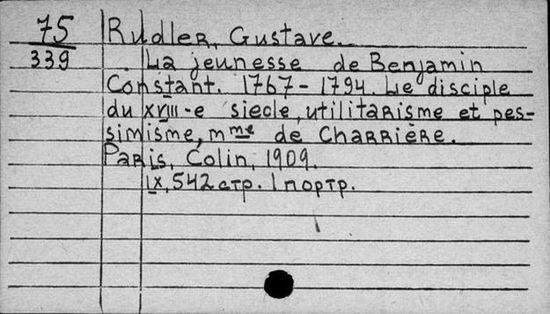 75
339
Rudler, Gustave.
La jeunesse de Benjamin
Constant. 1767-1794. Le disciple
du XVIII-e siecle, utilitarisme et pes-
simisme, Mme de Charrière.
Paris, Colin, 1909.
IX, 542 стр. 1 портр.